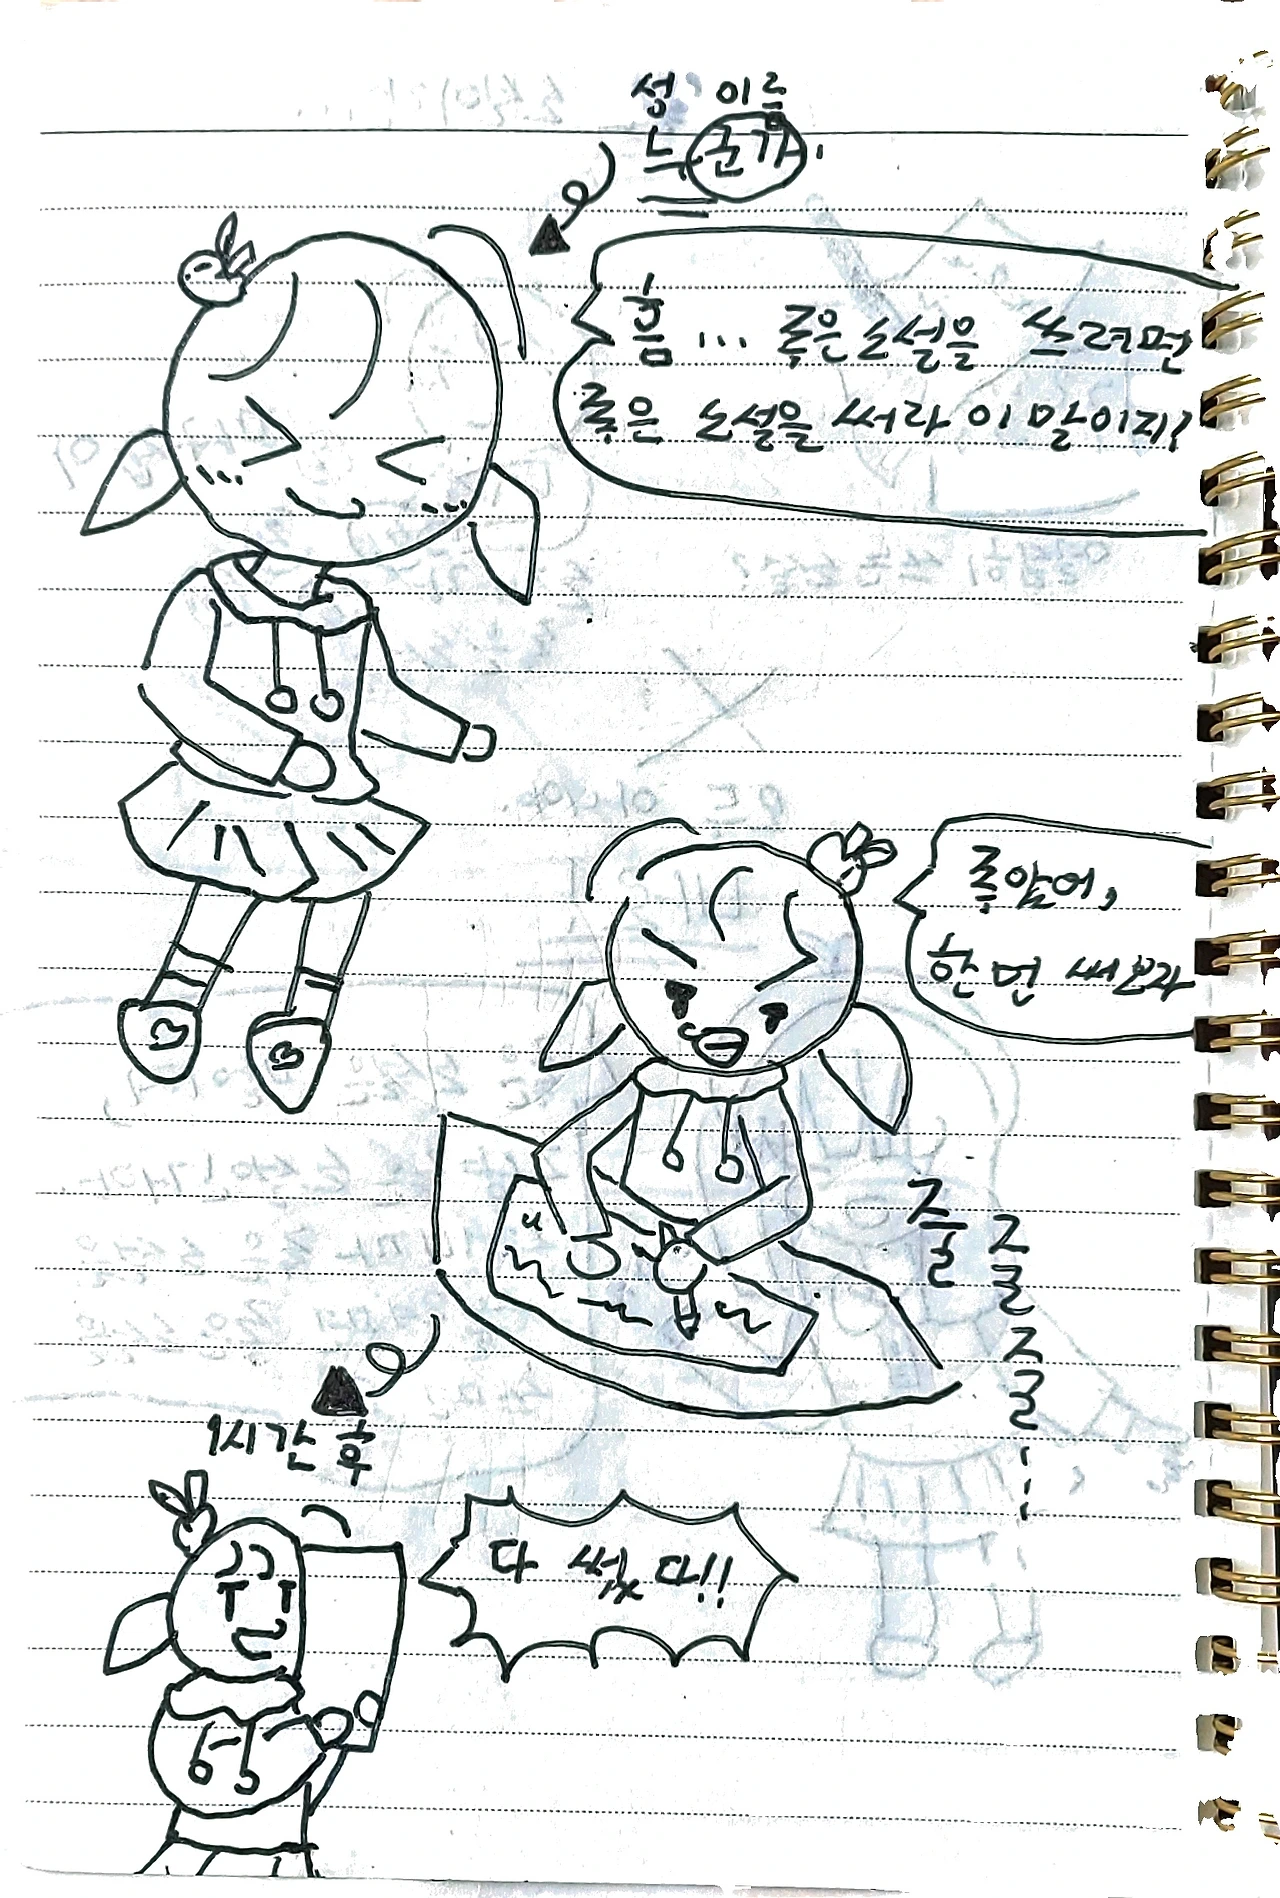 성 이름
누군가.
흠... 좋은 소설을 쓰려면
좋은 소설을 써라 이 말이지?
좋았어,
한 번 써보자
즐
즐
즐
1시간 후
다 썼다!!